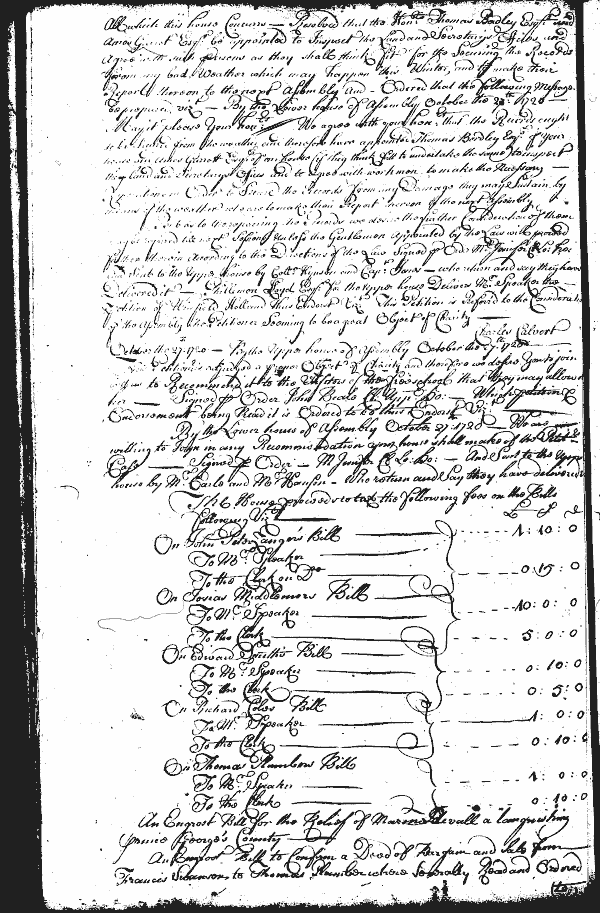 All which this house Concurrs — Resolved that the Honble Thomas Bordley Esqr and
Amos Garrett Esqr be appointed to Inspect the Land and Secretarys Offices and
Agree with such persons as they shall think fitt for the Securing the Records
from any bad Weather which may happen this Winter, and to make their
Report thereon to the next Assembly And — Ordered that the following Message
be prepared, vizt — By the Lower house of Assembly October the 1720
May it please Your honrs We agree with your honrs that the Records ought
to be from the weather, and therefore have appointed Thomas Bordley Esqr of Your
house and Amos Garrett Esqr of our House (if they think fitt to undertake the same) to inspect
the Land and Secretarys Offices and to agree with workmen to make the Necessary
in Order to Secure the Records from any Damage they may Sustain by
means of the weather and to make their Report thereon of the next Assembly
But as to the Records we desire the further Consideration of them
may unless the Gentlemen Appointed by the Law will proceed
further therein According to the Directions of the Law Signed p Order M Jenifer Cl Lo: ho:
Sent to the Upper house by Collo Hynson and Capt Jones — who return and say they have
Delivered it — Philemon Lloyd Esqr from the Upper house Delivers Mr Speaker the
Petition of Winifield Holland thus Endorsed Vizt This Petition is Referred to the Consideration
of the Assembly, the Petitioner Seeming to be a great Object of Charity
Charles Calvert
October the 27. 1720 — By the Upper house of Assembly October the 27th 1720
Petition is adjudged a proper Object of Charity and therefore we desire You to join
with us to Recommend it to the Visitors of the freeschool that they may allow
her — Signed p Order John Beale Cl Upp: Ho: Which petition &
Endorsement being Read it is Ordered to be thus Endorsed Vizt
By the Lower house of Assembly October 27 1720 — We are
willing to Join in any Recommendation your house shall make of the Petitrs
Case — Signed p Order — M Jenifer Cl Lo: Ho: — And Sent to the Upper
house by Mr Earle and Mr — Who return and Say they have delivered
The House proceeds to tax the following fees on the Bills
following Vizt £ S D
On John Peter Zenger's Bill
To Mr Speaker 1: 10: 0
To the Clerk on Do 0: 15: 0
On Josias Middlemore Bill
To Mr Speaker 10: 0: 0
To the Clerk 5: 0: 0
On Edward Smiths Bill
To Mr Speaker 0: 10: 0
To the Clerk 0: 5: 0
On Richard Coles Bill
To Mr Speaker 1: 0: 0
To the Clerk 0: 10: 0
On Thomas Plumbers Bill
To Mr Speaker 1: 0: 0
To the Clerk 0: 10: 0
An Engrost Bill for the Relief of Marma: Devall a languishing
Prince George's County
An Engrost Bill to Confirm a Deed of Bargain and Sale from
Francis Swanson to Thomas Plumber where Severally Read and Ordered
to